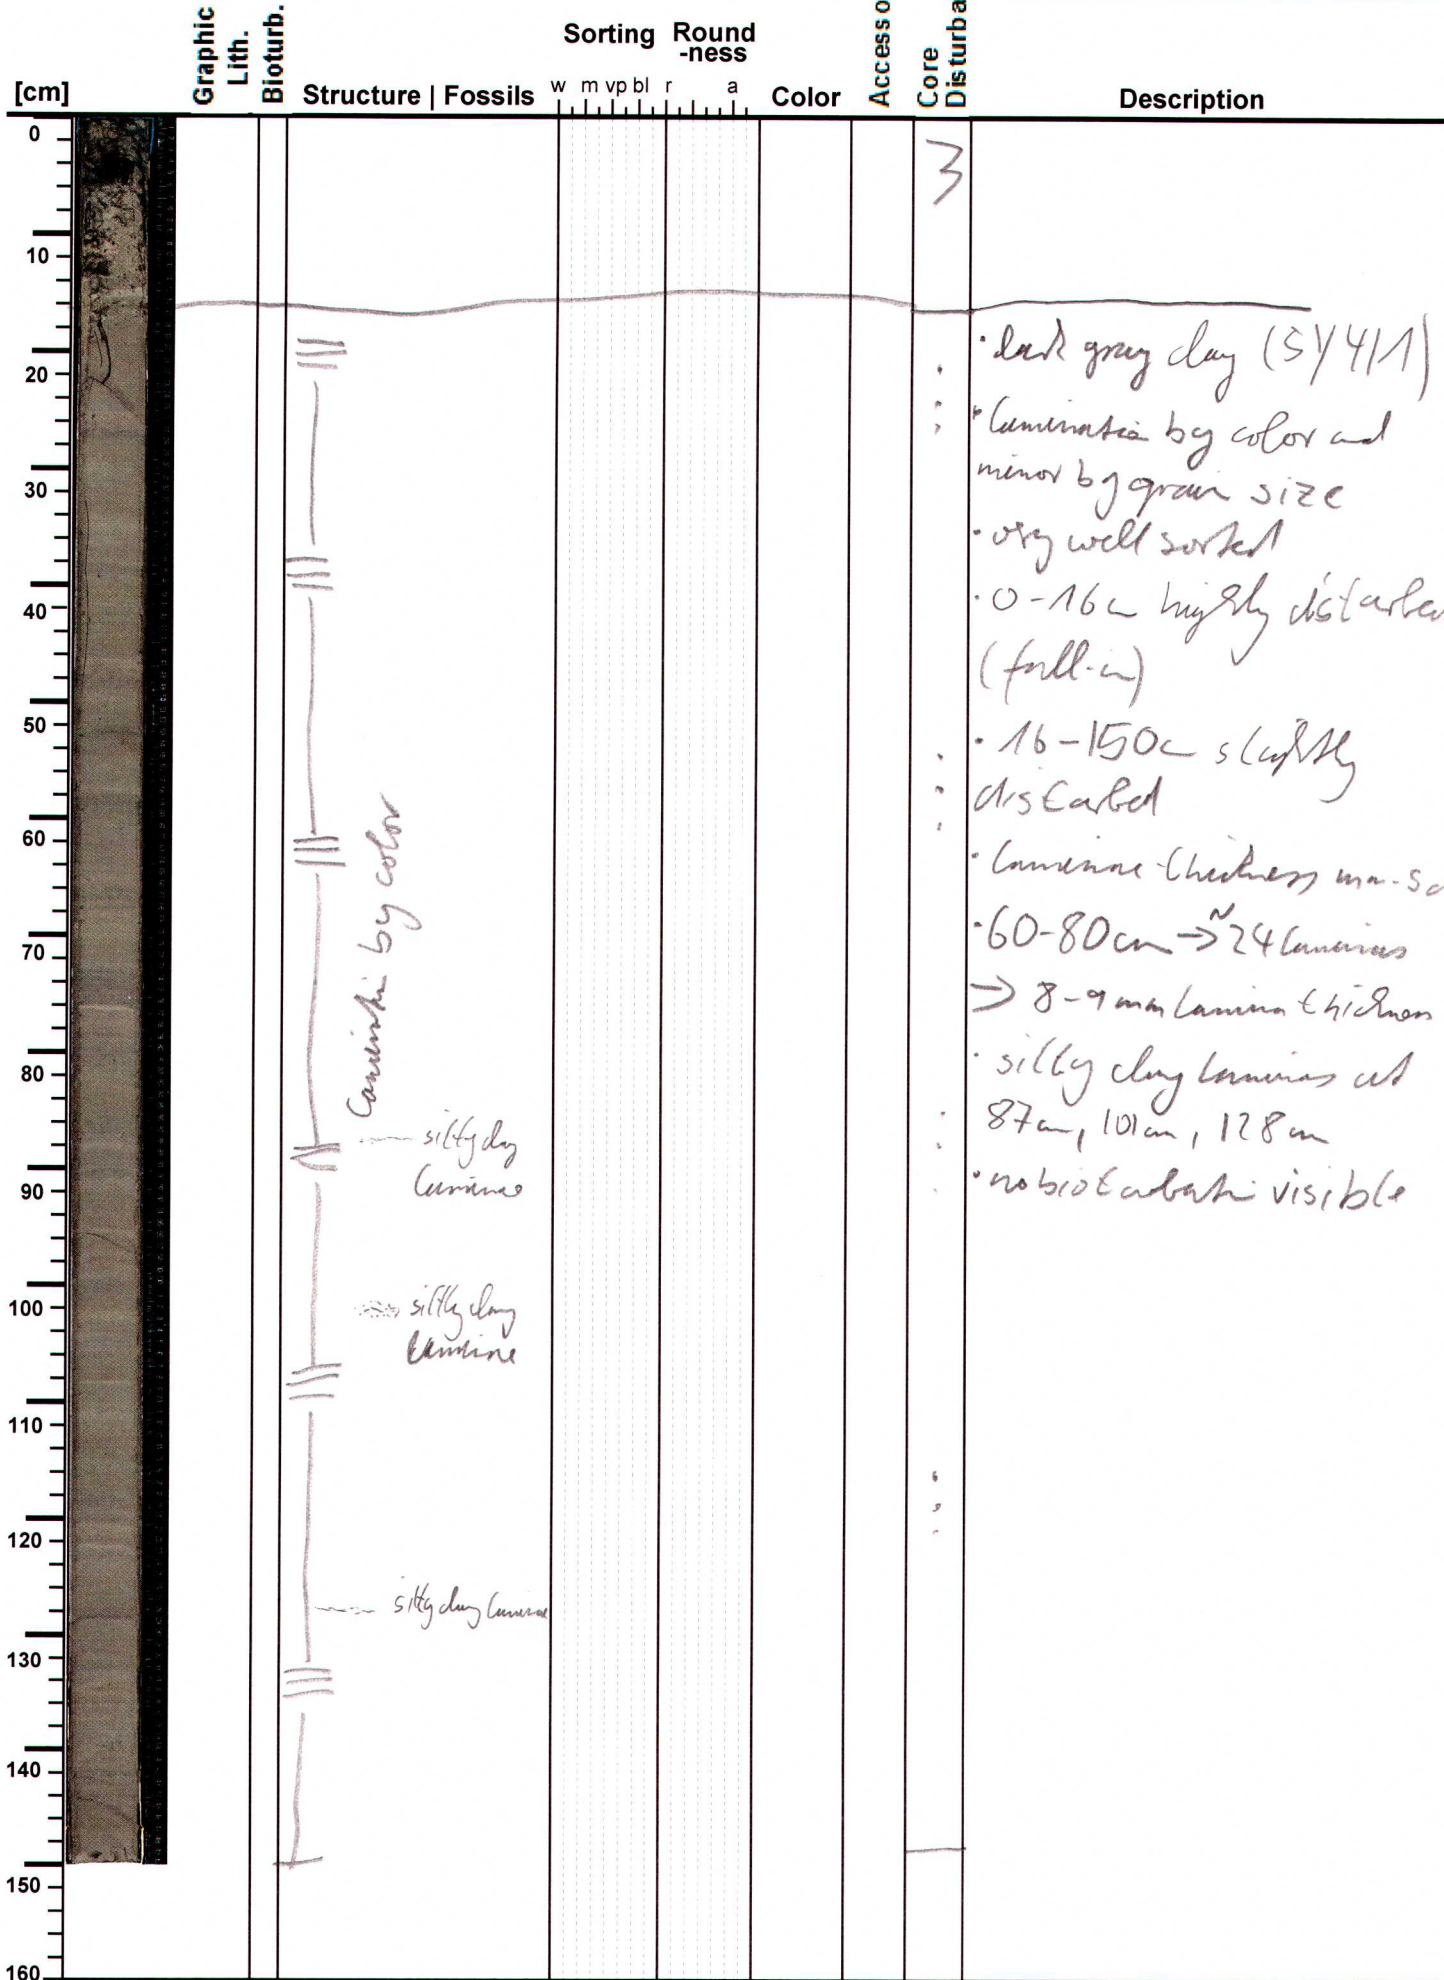 Graphic Lith.
Bioturb.
Sorting
Round-ness
Accesso
Core Disturba
[cm]
Structure | Fossils
w m vp bl r a
Color
Description
0
10
20
30
40
50
60
70
80
90
100
110
120
130
140
150
160
Lamination by color
silty clay
laminae
silty clay
laminae
silty clay laminae
· dark gray clay (5Y 4/1)
· lamination by color and
minor by grain size
· very well sorted
· 0-16cm highly disturbed
(fall-in)
· 16-150cm slightly
disturbed
· laminae thickness mm-
· 60-80cm → ~24 laminas
=> 8-9 mm lamina thickness
· silty clay laminas at
87cm, 101cm, 128cm
· no bioturbation visible